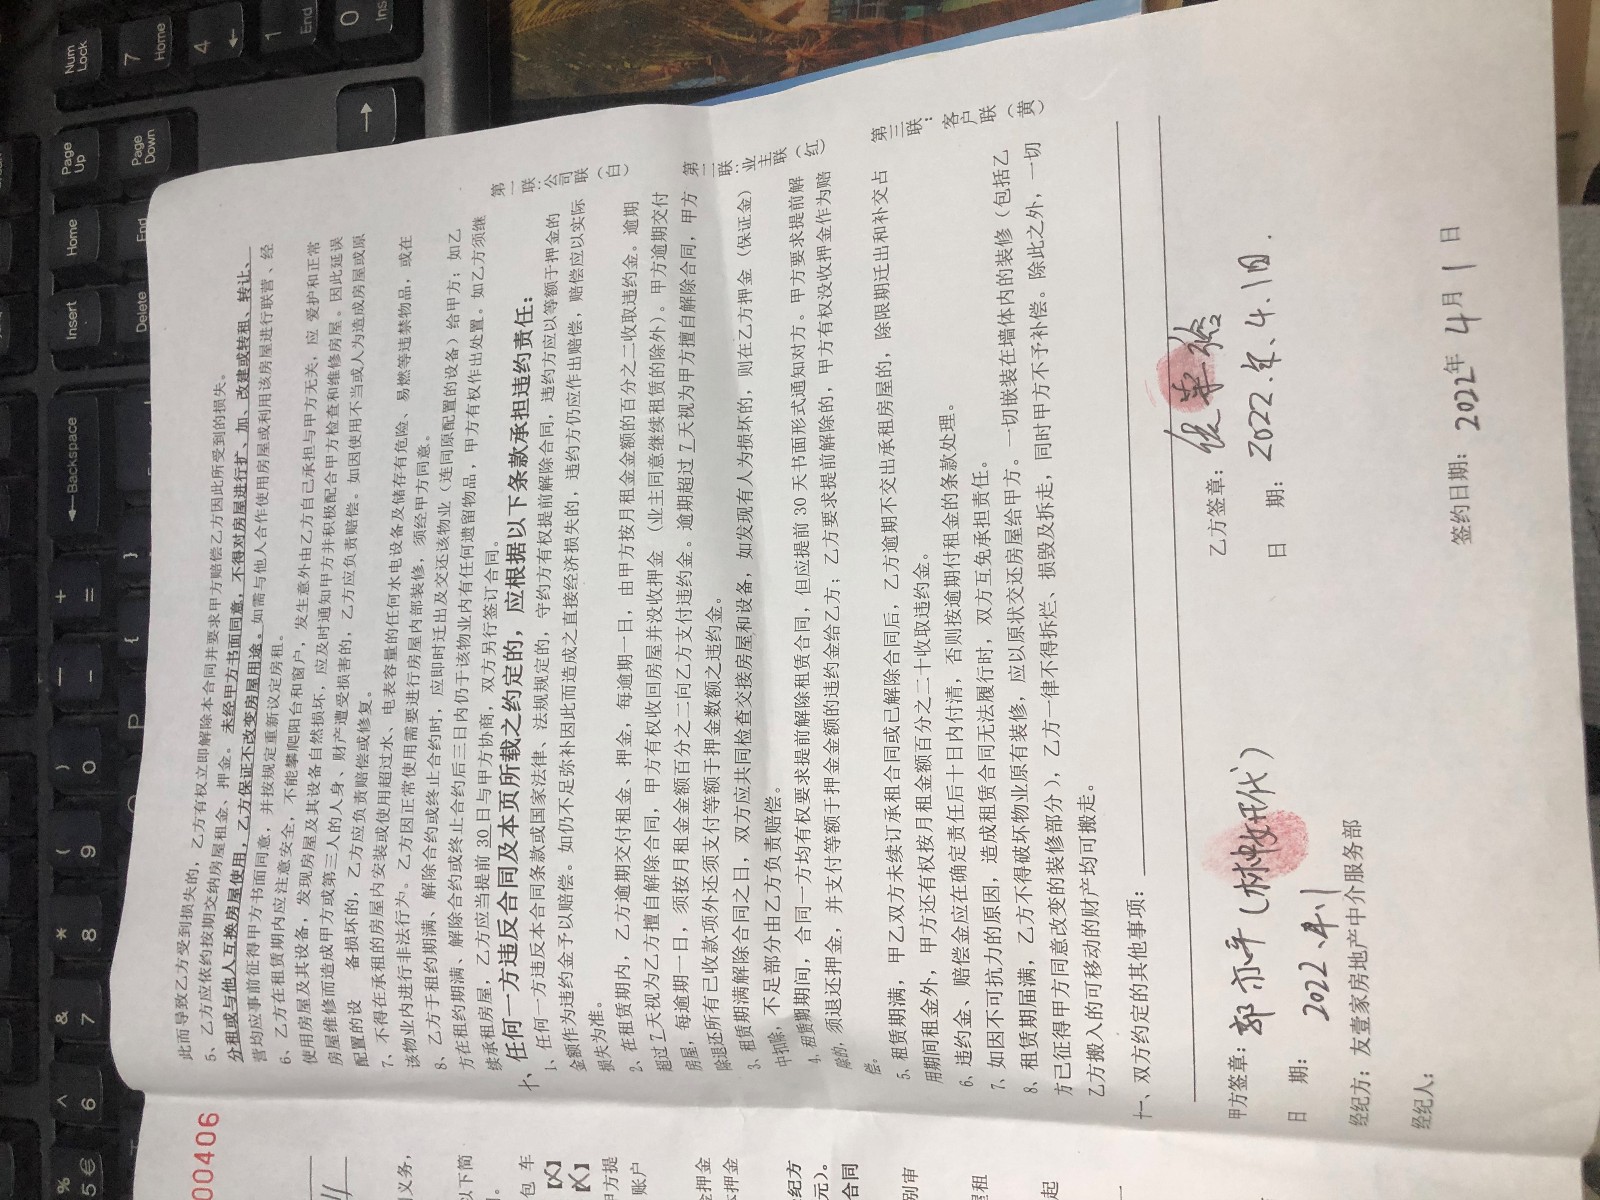 此而导致乙方受到损失的，乙方有权立即解除本合同并要求甲方赔偿乙方因此所受到的损失。
5、乙方应依约按期交纳房屋租金、押金。未经甲方书面同意，不得对房屋进行扩、加、改建或转租、转让、
分租或与他人互换房屋使用，乙方保证不改变房屋用途。如需与他人合作使用房屋或利用该房屋进行联营、经
营均应事前征得甲方书面同意，并按规定重新议定房租。
6、乙方在租赁期内应注意安全，不能攀爬阳台和窗户，发生意外由乙方自己承担与甲方无关，应 爱护和正常
使用房屋及其设备，发现房屋及其设备自然损坏，应及时通知甲方并积极配合甲方检查和维修房屋。因此延误
房屋维修而造成甲方或第三人的人身、财产遭受损害的，乙方应负责赔偿。如因使用不当或人为造成房屋或原
配置的设 备损坏的，乙方应负责赔偿或修复。
7、不得在承租的房屋内安装或使用超过水、电表容量的任何水电设备及储存有危险、易燃等违禁物品，或在
该物业内进行非法行为。乙方因正常使用需要进行房屋内部装修，须经甲方同意。
8、乙方于租约期满、解除合约或终止合约时，应即时迁出及交还该物业（连同原配置的设备）给甲方；如乙
方在租约期满、解除合约或终止合约后三日内仍于该物业内有任何遗留物品，甲方有权作出处置。如乙方须继
续承租房屋，乙方应当提前 30 日与甲方协商，双方另行签订合同。
十、任何一方违反合同及本页所载之约定的，应根据以下条款承担违约责任：
1、任何一方违反本合同条款或国家法律、法规规定的，守约方有权提前解除合同，违约方应以等额于押金的
金额作为违约金予以赔偿。如仍不足弥补因此而造成之直接经济损失的，违约方仍应作出赔偿，赔偿应以实际
损失为准。
2、在租赁期内，乙方逾期交付租金、押金，每逾期一日，由甲方按月租金金额的百分之二收取违约金。逾期
超过 7 天视为乙方擅自解除合同，甲方有权收回房屋并没收押金（业主同意继续租赁的除外）。甲方逾期交付
房屋，每逾期一日，须按月租金金额百分之二向乙方支付违约金。逾期超过 7 天视为甲方擅自解除合同，甲方
除退还所有已收款项外还须支付等额于押金数额之违约金。
3、租赁期满解除合同之日，双方应共同检查交接房屋和设备，如发现有人为损坏的，则在乙方押金（保证金）
中扣除，不足部分由乙方负责赔偿。
4、租赁期期间，合同一方均有权要求提前解除租赁合同，但应提前 30 天书面形式通知对方。甲方要求提前解
除的，须退还押金，并支付等额于押金金额的违约金给乙方；乙方要求提前解除的，甲方有权没收押金作为赔
偿。
5、租赁期满，甲乙双方未续订承租合同或已解除合同后，乙方逾期不交出承租房屋的，除限期迁出和补交占
用期间租金外，甲方还有权按月租金额百分之二十收取违约金。
6、违约金、赔偿金应在确定责任后十日内付清，否则按逾期付租金的条款处理。
7、如因不可抗力的原因，造成租赁合同无法履行时，双方互免承担责任。
8、租赁期届满，乙方不得破坏物业原有装修，应以原状交还房屋给甲方。一切嵌装在墙体内的装修（包括乙
方已征得甲方同意改变的装修部分），乙方一律不得拆烂、损毁及拆走，同时甲方不予补偿。除此之外，一切
乙方搬入的可移动的财产均可搬走。
十一、双方约定的其他事项：
甲方签章：郭亦平（林 代） 乙方签章：
日 期： 2022. 日 期： 2022.年.4.1日.
经纪方：友壹家房地产中介服务部
经纪人： 签约日期：2022年 4月 1 日
第一联：公司联（白）
第二联：业主联（红）
第三联：客户联（黄）
00406
义务，
以下简
包 车
【X】
【X】
甲方提
账户
押金
押金
纪方
元）。
合同
别审
租
起
Num Lock
7 Home
4
1 End
0 Ins
Page Up
Page Down
Home
End
Insert
Delete
Backspace
+ =
_ -
) 0
( 9
* 8
& 7
^ 6
% 5 €
{
}
P